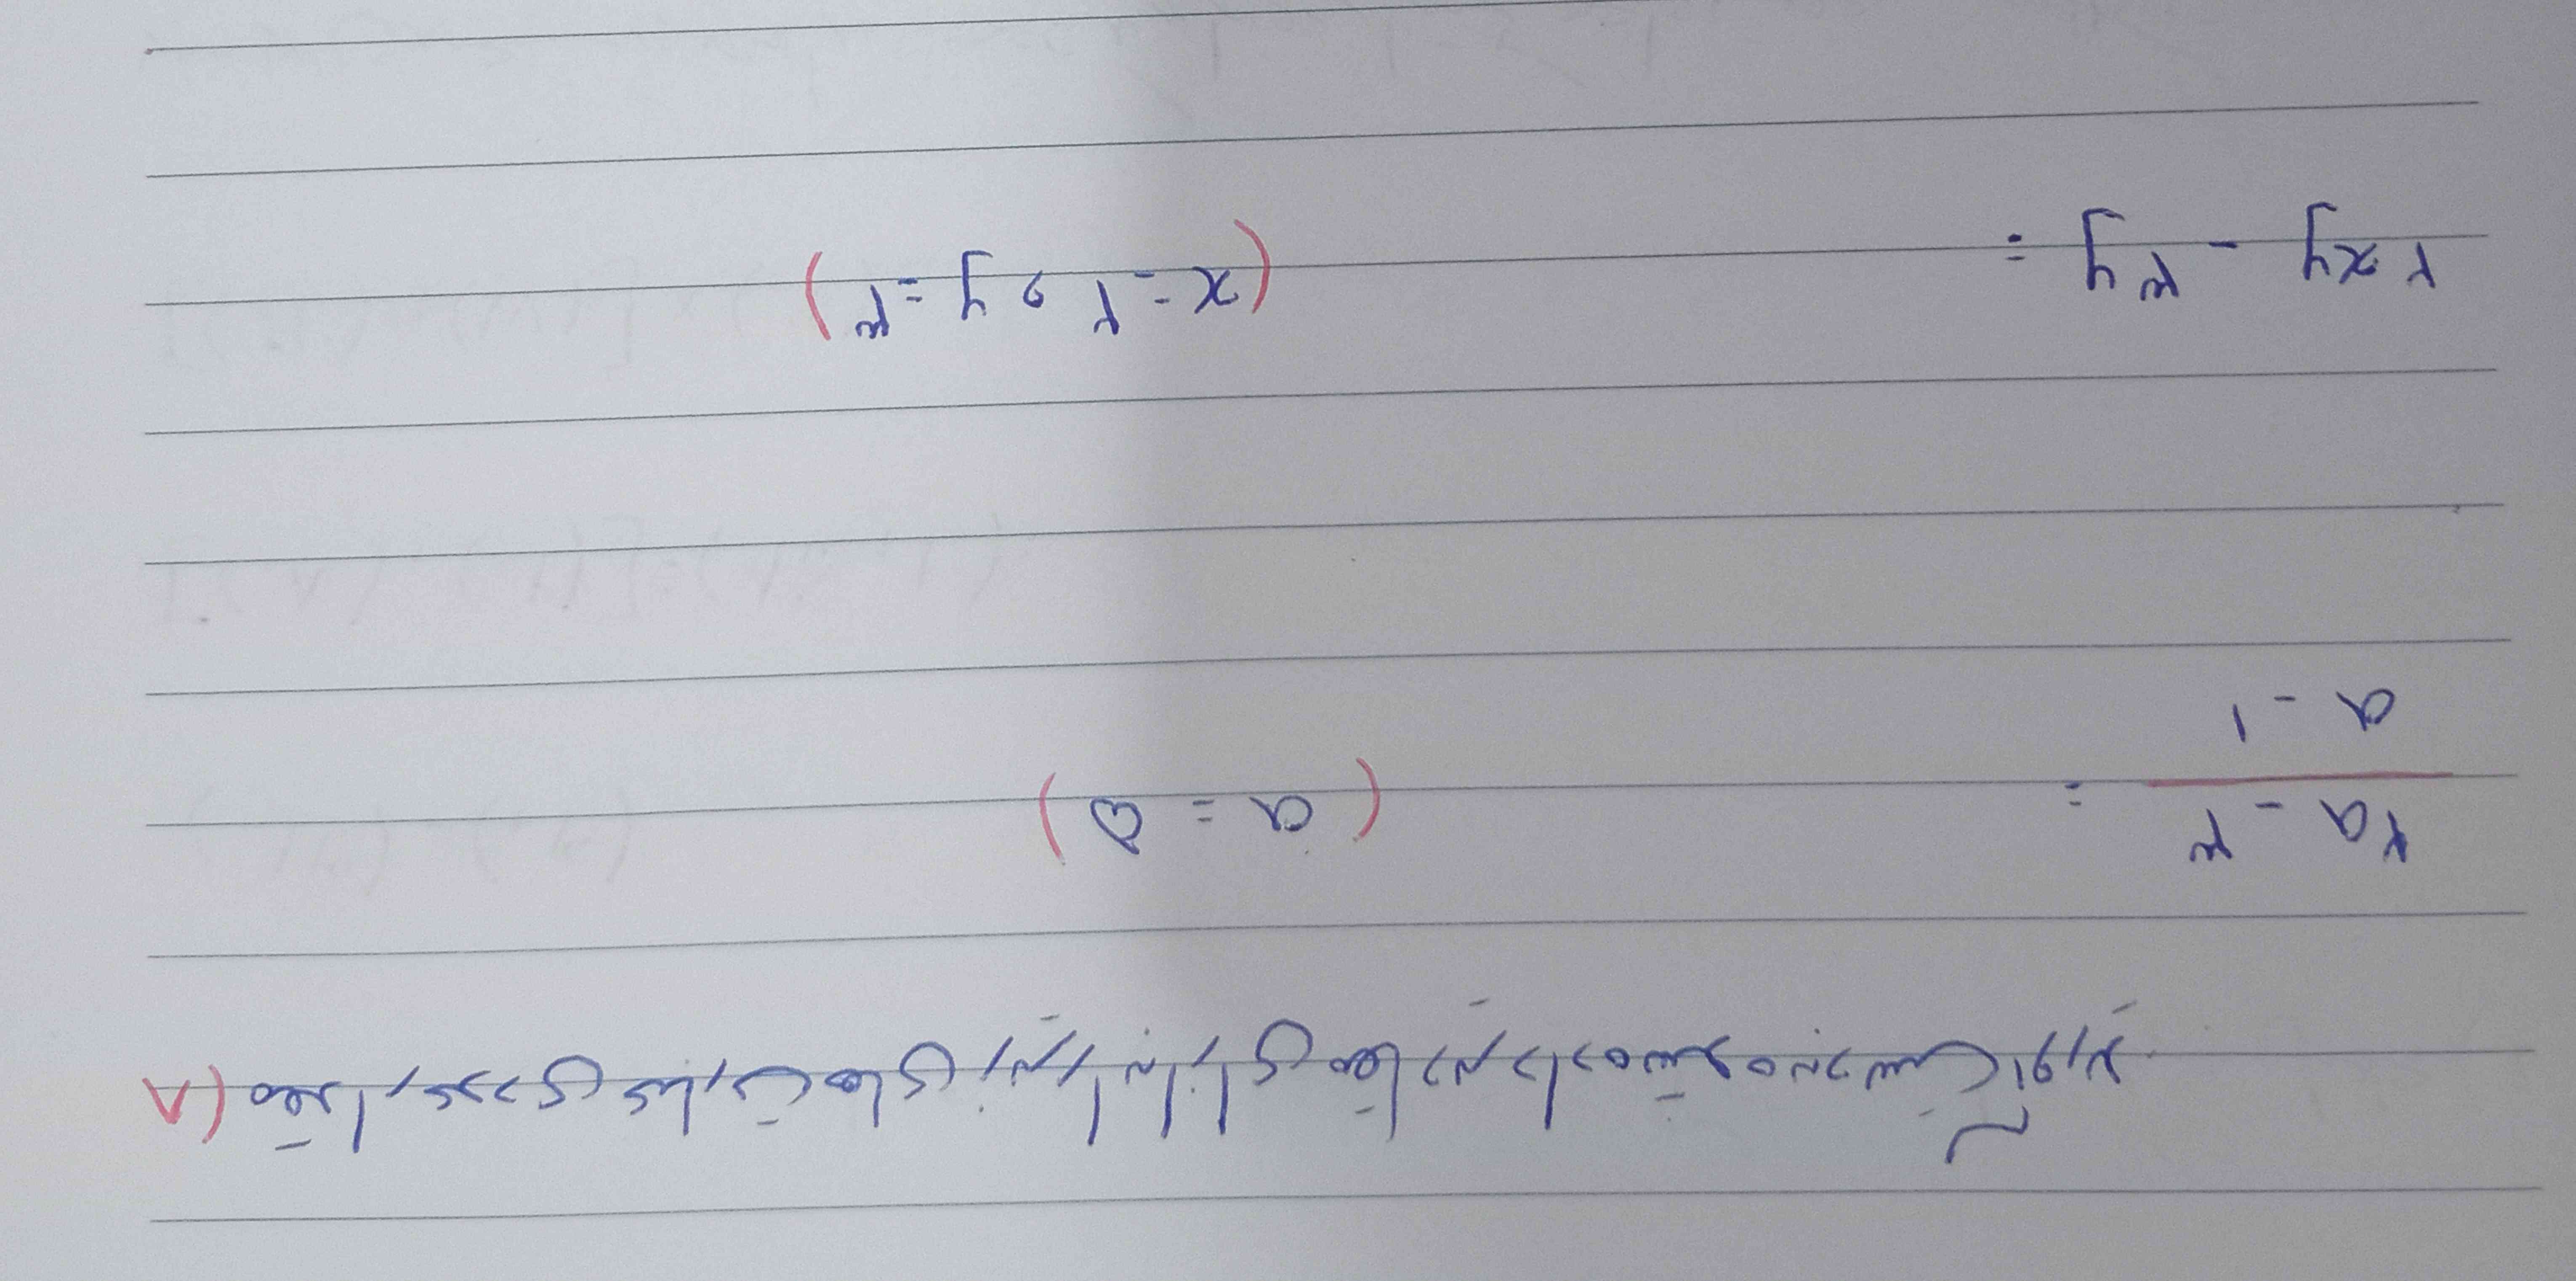 ۸) مقدار عددی عبارت های جبری زیر را به ازای مقادیر داده شده به دست آورید.
۴a - ۳
a - ۱
= (a = ۵)
۲xy - ۳y = (x = ۲ و y = ۳)